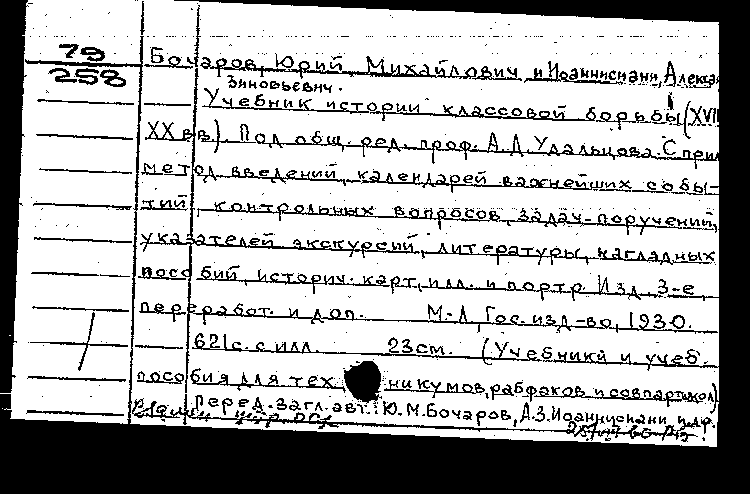 79
258
Бочаров, Юрий Михайлович и Иоаннисиани, Алекса
Зиновьевич.
Учебник истории классовой борьбы (XVII
XX вв). Под общ. ред. проф. А.Д. Удальцова. С прил
метод введений, календарей важнейших собы-
тий, контрольных вопросов, задач-поручений,
указателей экскурсий, литературы, наглядных
пособий, историч. карт, илл. и портр. Изд. 3-е,
переработ. и доп. М-Л, Гос. изд-во, 1930.
621с. с илл. 23см. (Учебники и учеб.
пособия для техникумов, рабфаков и совпартшкол)
Перед. загл. авт.: Ю.М. Бочаров, А.З. Иоаннисиани и др.